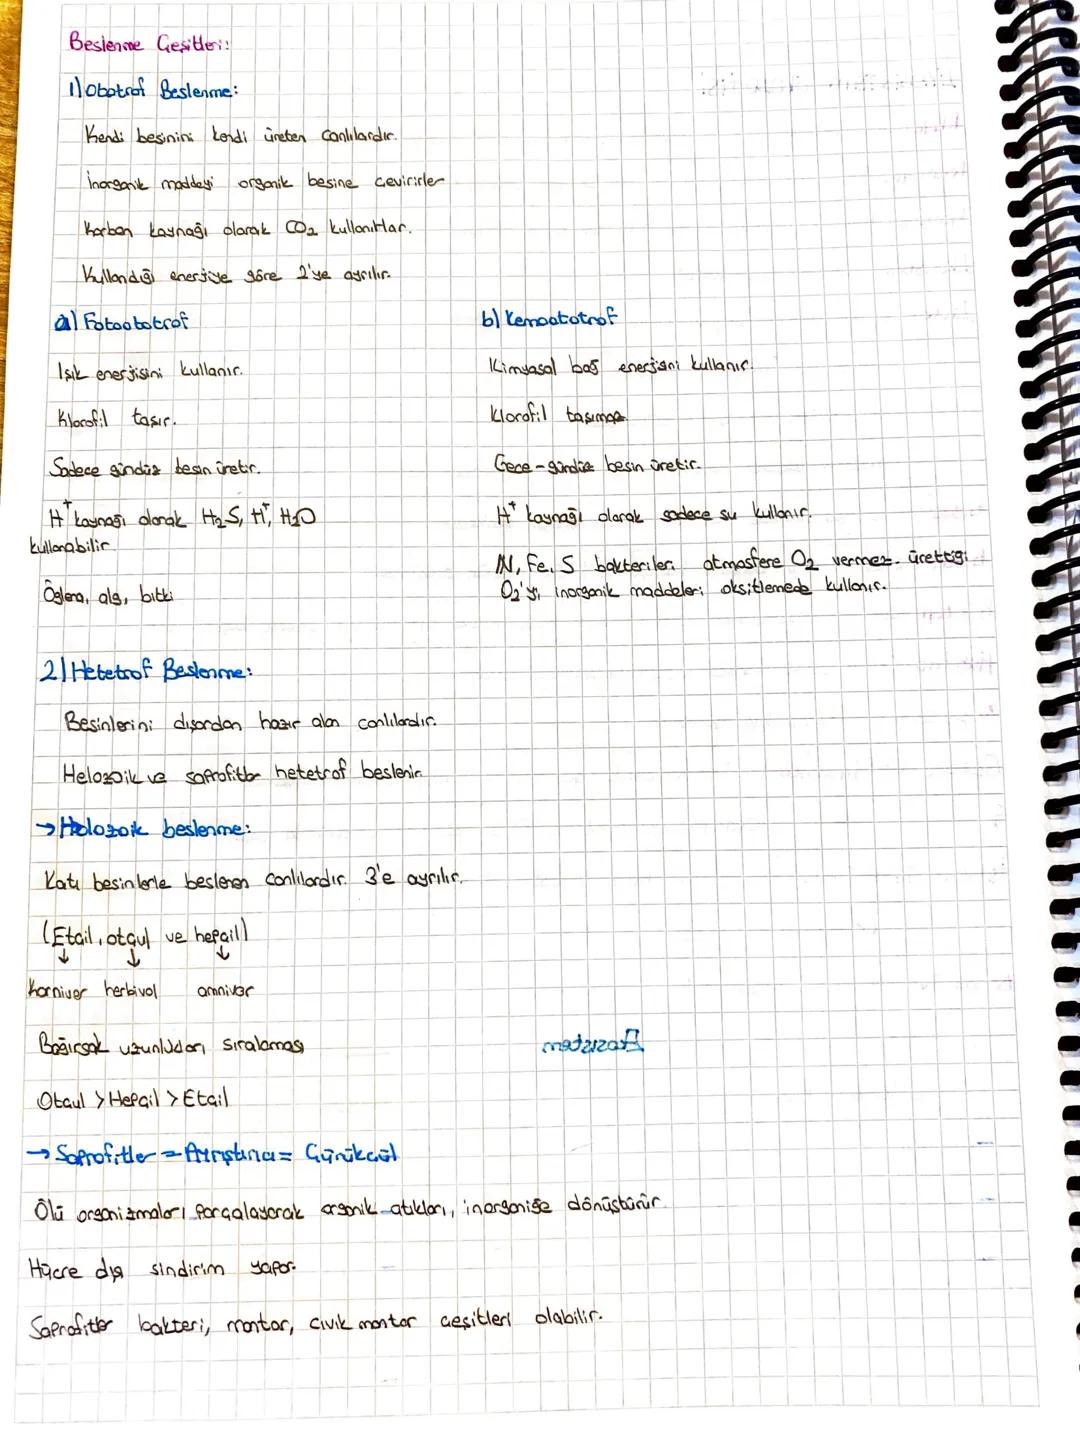 Beslenme Çeşitleri:
1) Obotrof Beslenme:
Kendi besinini kendi üreten canlılardır.
İnorganik maddeyi organik besine çevirirler
Karbon kaynağı olarak CO2 kullanırlar.
Kullandığı enerjiye göre 2'ye ayrılır.
a) Fotoobotrof
Işık enerjisini kullanır.
Klorofil taşır.
Sadece gündüz besin üretir.
H⁺ kaynağı olarak H2S, H⁺, H2O
kullanabilir.
Öglena, alg, bitki
b) Kemoototrof
Kimyasal bağ enerjisini kullanır.
Klorofil taşımaz
Gece-gündüz besin üretir.
H⁺ kaynağı olarak sadece su kullanır.
N, Fe, S bakterileri atmosfere O2 vermez. ürettiği
O2'yi, inorganik maddeleri oksitlemede kullanır.
2) Hetetrof Beslenme:
Besinlerini dışardan hazır alan canlılardır.
Helozoik ve saprofitler hetetrof beslenir.
→ Holozoik beslenme:
Katı besinlerle beslenen canlılardır. 3'e ayrılır.
(Etçil, otçul ve hepçil)
↓ ↓ ↓
Karnivor herbivol omnivor
Bağırsak uzunlukları sıralaması
Otçul > Hepçil > Etçil
→ Saprofitler = Ayrıştırıcı = Çürükçül
Ölü organizmaları parçalayarak organik atıkları, inorganiğe dönüştürür.
Hücre dışı sindirim yapar.
Saprofitler bakteri, mantar, cıvık mantar çeşitleri olabilir.